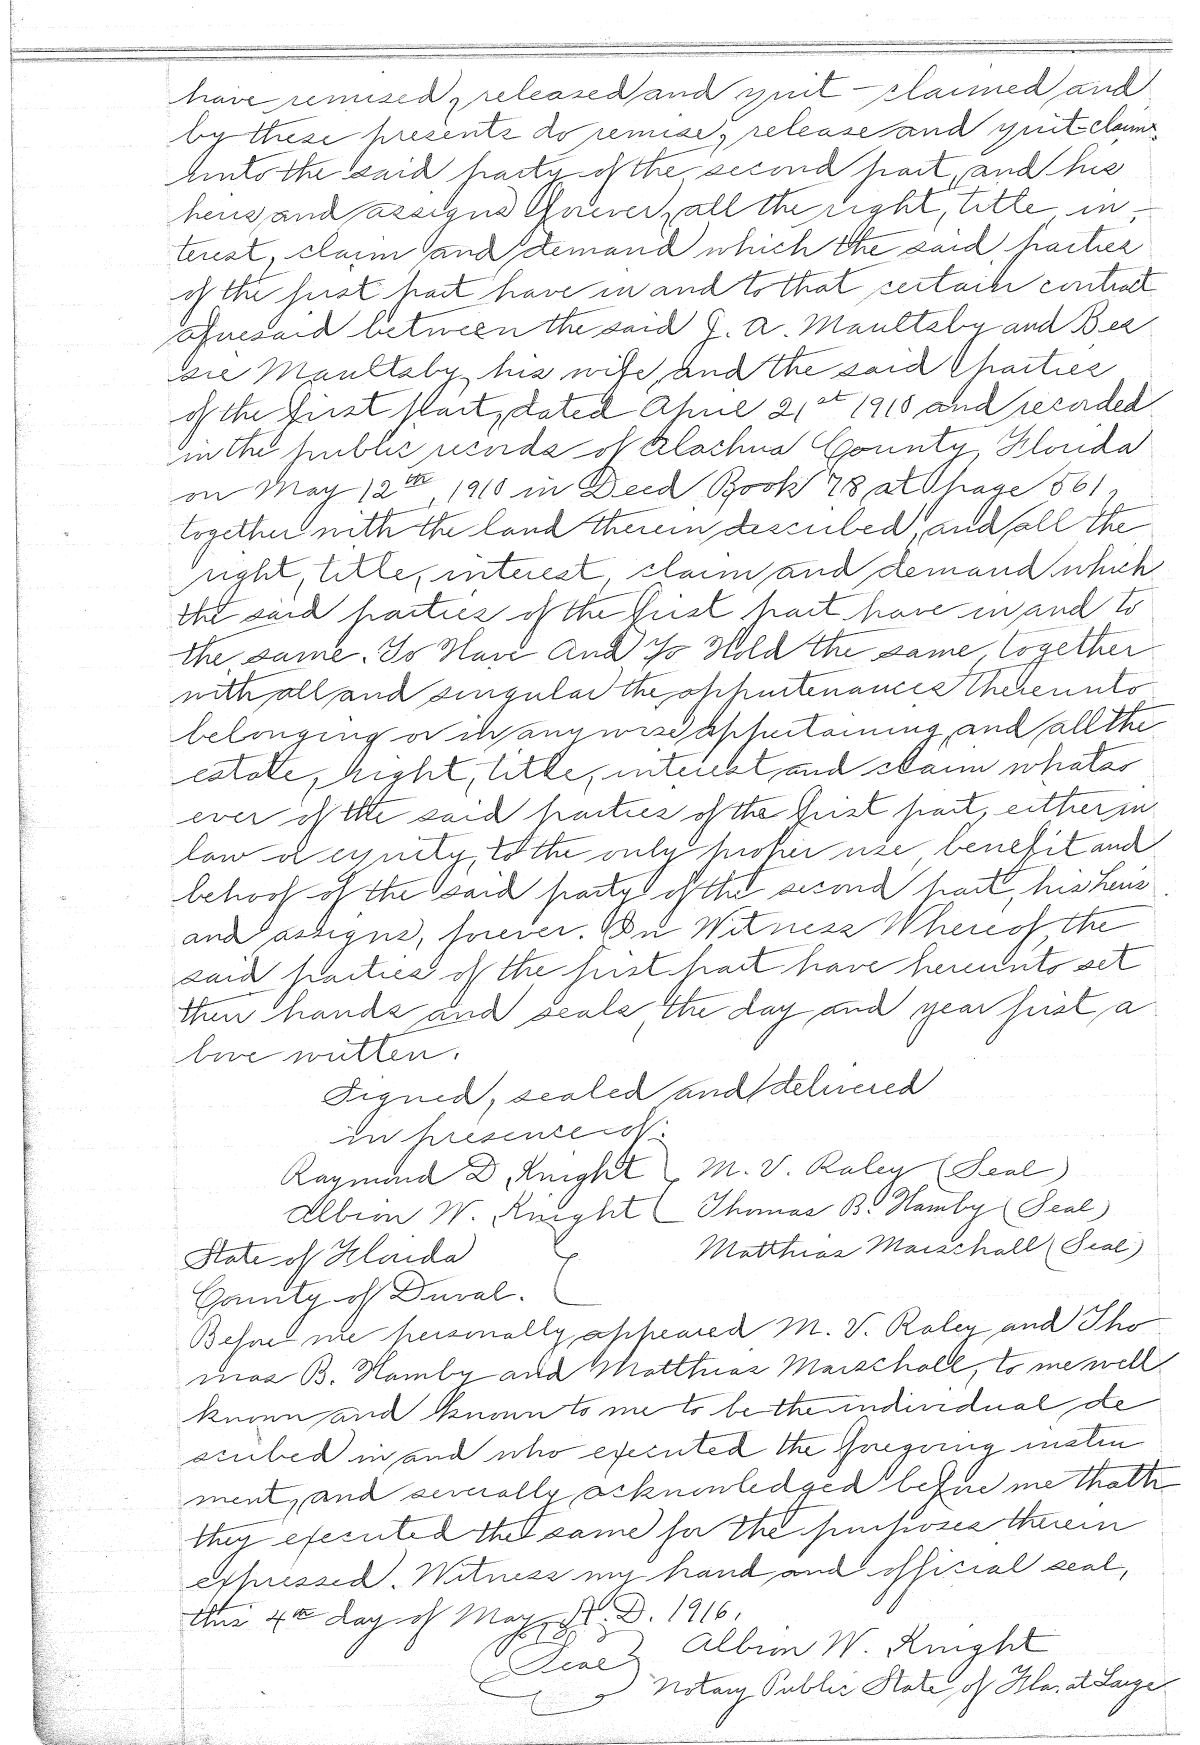 have remised, released and quit-claimed and
by these presents do remise, release and quit-claim
unto the said party of the second part, and his
heirs and assigns forever, all the right, title, in-
terest, claim and demand which the said parties
of the first part have in and to that certain contract
aforesaid between the said J. A. Maultsby and Bes
sie Maultsby, his wife, and the said parties
of the first part, dated April 21st 1910 and recorded
in the public records of Alachua County, Florida
on May 12th, 1910 in Deed Book 78 at page 561,
together with the land therein described, and all the
right, title, interest, claim and demand which
the said parties of the first part have in and to
the same. To Have And To Hold the same, together
with all and singular the appurtenances thereunto
belonging or in anywise appertaining, and all the
estate, right, title, interest and claim whatso
ever of the said parties of the first part, either in
law or equity, to the only proper use, benefit and
behoof of the said party of the second part, his heirs
and assigns, forever. In Witness Whereof, the
said parties of the first part have hereunto set
their hands and seals, the day and year first a
bove written.
Signed, sealed and delivered
in presence of:
Raymond D. Knight M. V. Raley (Seal)
Albion W. Knight Thomas B. Hamby (Seal)
State of Florida Matthias Marschall (Seal)
County of Duval.
Before me personally appeared M. V. Raley and Tho
mas B. Hamby and Matthias Marschall, to me well
known and known to me to be the individual de
scribed in and who executed the foregoing instru
ment, and severally acknowledged before me thath
they executed the same for the purposes therein
expressed. Witness my hand and official seal,
this 4th day of May, A. D. 1916.
Albion W. Knight
Seal
Notary Public State of Fla. at Large